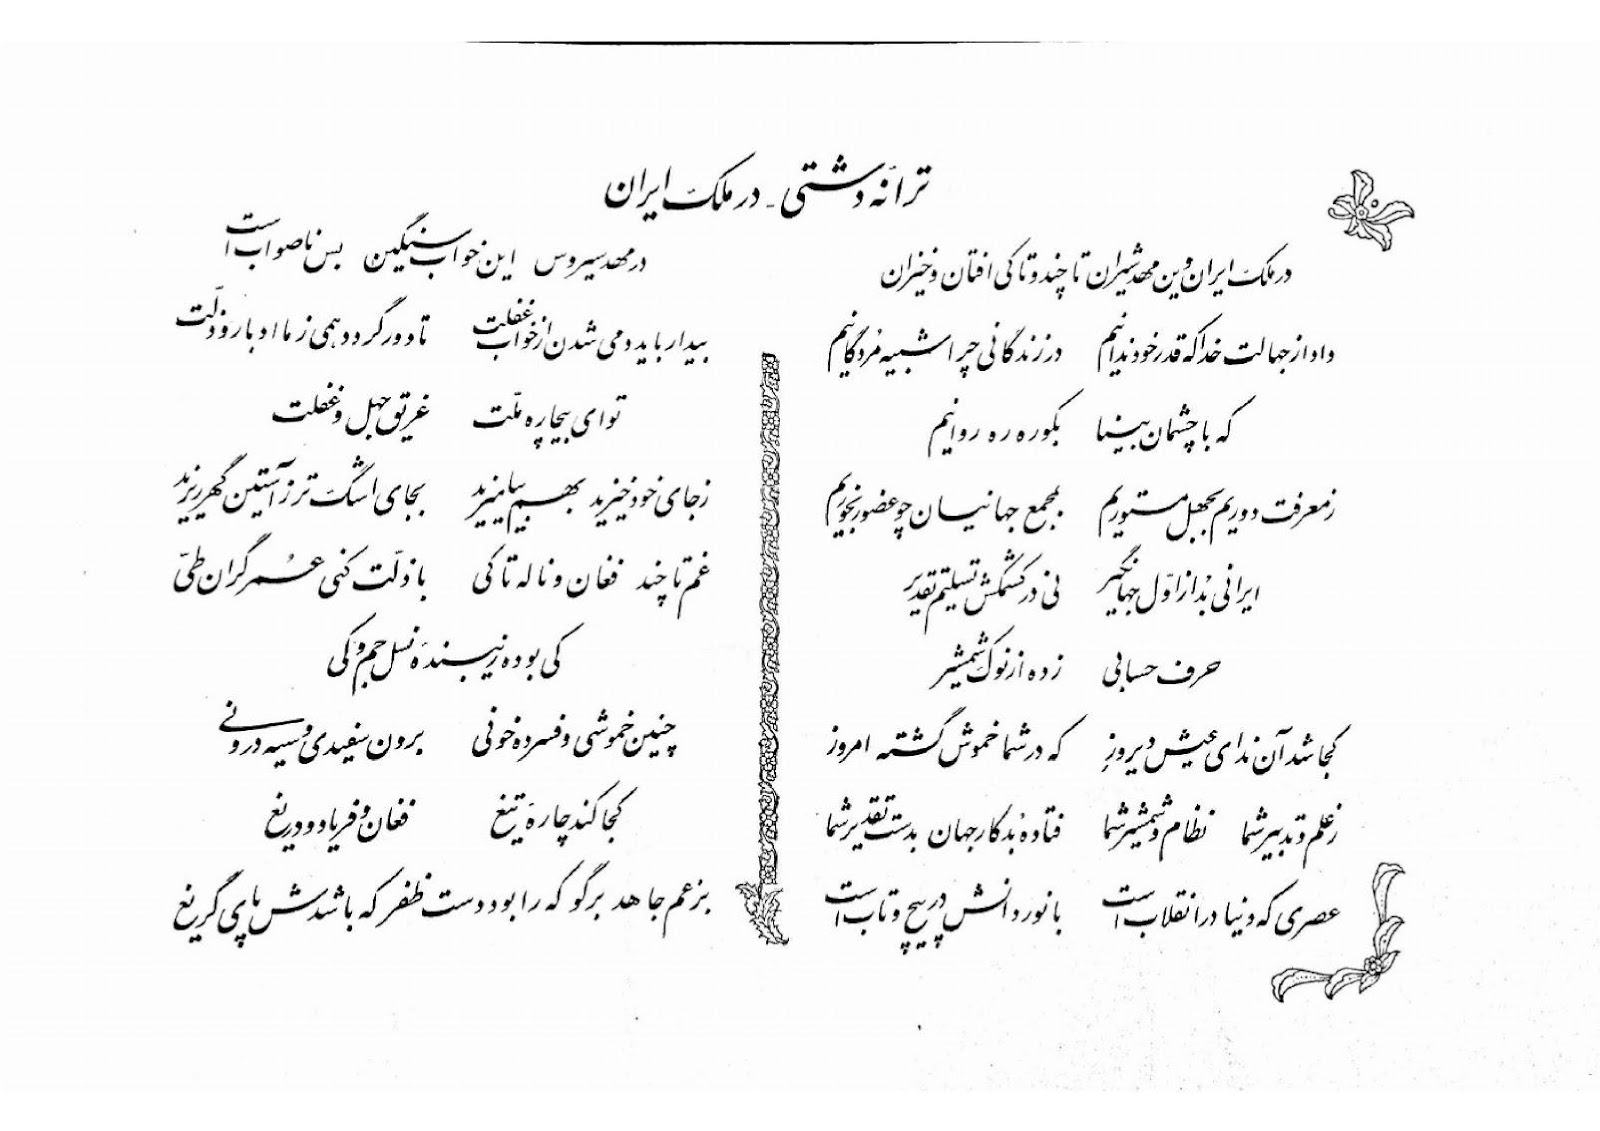 ترانه دشتی - در ملک ایران
در ملک ایران وین مهد شیران تا چند و تا کی افتان و خیزان
داد از جهالت خدا که قدر خود ندانیم در زندگانی چرا شبیه مردگانیم
که با چشمان بینا بکوره ره روانیم
ز معرفت دوریم بجهل مستوریم بمجمع جهانیان چو عضو رنجوریم
ایرانی بُد از اوّل جهانگیر نی در کشمکش تسلیم تقدیر
حرف حسابی زده از نوک شمشیر
کجا شد آن ندای عیش دیروز که در شما خموش گشته امروز
ز علم و تدبیر شما نظام و شمشیر شما فتاده بُد کار جهان بدست تقدیر شما
عصری که دنیا در انقلاب است با نور دانش در پیچ و تاب است
در مهد سیروس این خواب سنگین بس ناصواب است
بیدار باید دمی شدن از خواب غفلت تا دور گردد همی ز ما ادبار و ذلّت
تو ای بیچاره ملّت غریق جهل و غفلت
ز جای خود خیزید بهم بیامیزید بجای اشک تر ز آستین گهر ریزید
غم تا چند فغان و ناله تا کی با ذلّت کنی عمر گران طی
کی بوده زیبنده نسل جم و کی
چنین خموشی و فسرده خونی برون سفیدی و سیه درونی
کجا کند چاره تیغ فغان و فریاد و دریغ
بزعم جاهد برگو که را بود دست ظفر که باشدش پای گریغ